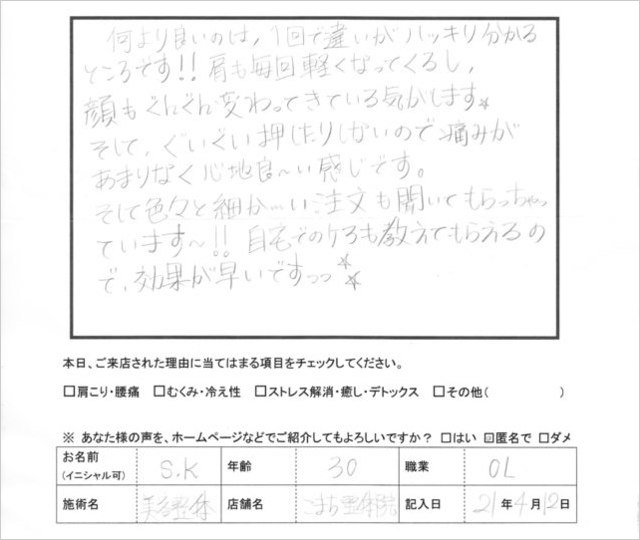 何より良いのは、1回で違いがハッキリ分かる
ところです!! 肩も毎回軽くなってくるし、
顔もぐんぐん変わってきている気がします☆
そして、ぐいぐい押したりしないので痛みが
あまりなく心地良〜い感じです。
そして色々と細か〜い注文も聞いてもらっちゃっ
ています〜!! 自宅でのケアも教えてもらえるの
で、効果が早いですっっ☆☆
本日、ご来店された理由に当てはまる項目をチェックしてください。
□肩こり・腰痛 □むくみ・冷え性 □ストレス解消・癒し・デトックス □その他( )
※ あなた様の声を、ホームページなどでご紹介してもよろしいですか? □はい ☑匿名で □ダメ
お名前 (イニシャル可) S.K 年齢 30 職業 OL
施術名 店舗名 記入日 21年4月12日